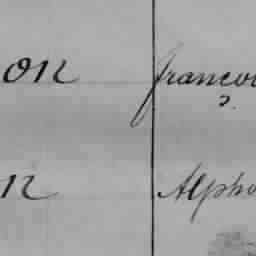 on francoi
n Alpho